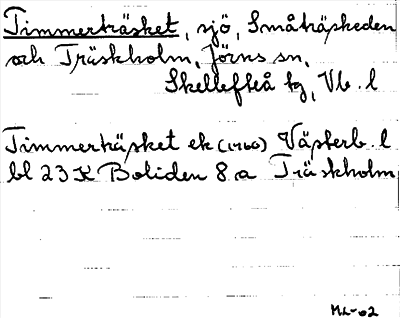 Timmerträsket, sjö, Småträskheden
och Träskholm, Jörns sn,
Skellefteå tg, Vb. l
Timmerträsket ek (1960) Västerb. l
bl 23 K Boliden 8 a Träskholm
ML-62